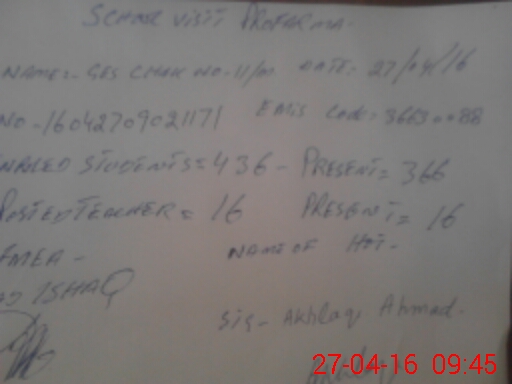 SCHOOL VISIT PROFARMA-
NAME:- GES CHAK NO-11/M DATE:- 27/04/16
NO-16042709021171 EMIS Code:- 36630088
STUDENTS=436- PRESENT= 366
POSTED TEACHER= 16 PRESENT= 16
MEA- NAME OF HOT-
ISHAQ
Sig- Akhlaq Ahmad.
27-04-16 09:45